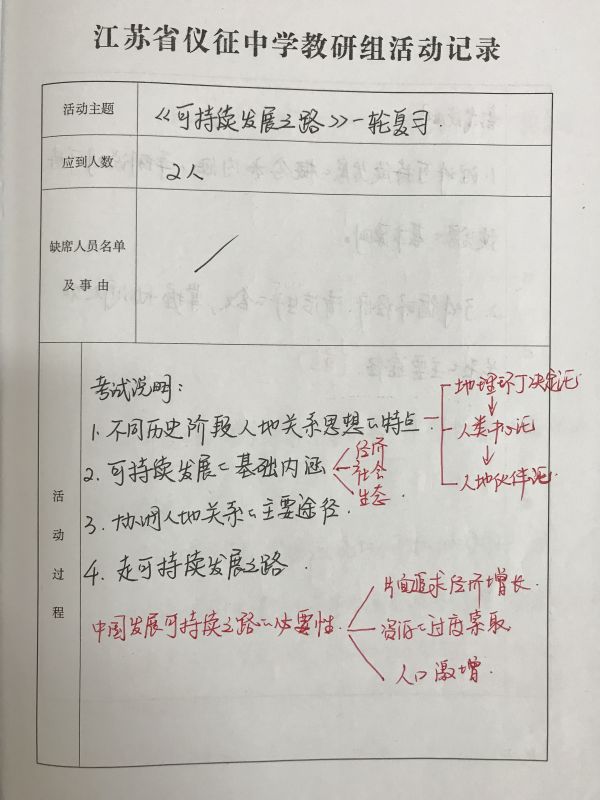 江苏省仪征中学教研组活动记录
活动主题
《可持续发展之路》一轮复习.
应到人数
2人
缺席人员名单
及事由
活动过程
考试说明:
1.不同历史阶段人地关系思想的特点.
地理环丁决定论
人类中心论
人地伙伴论
2.可持续发展的基础内涵
经济
社会
生态.
3.协调人地关系的主要途径.
4.走可持续发展之路.
中国发展可持续之路的必要性.
片面追求经济增长.
资源的过度索取.
人口激增.